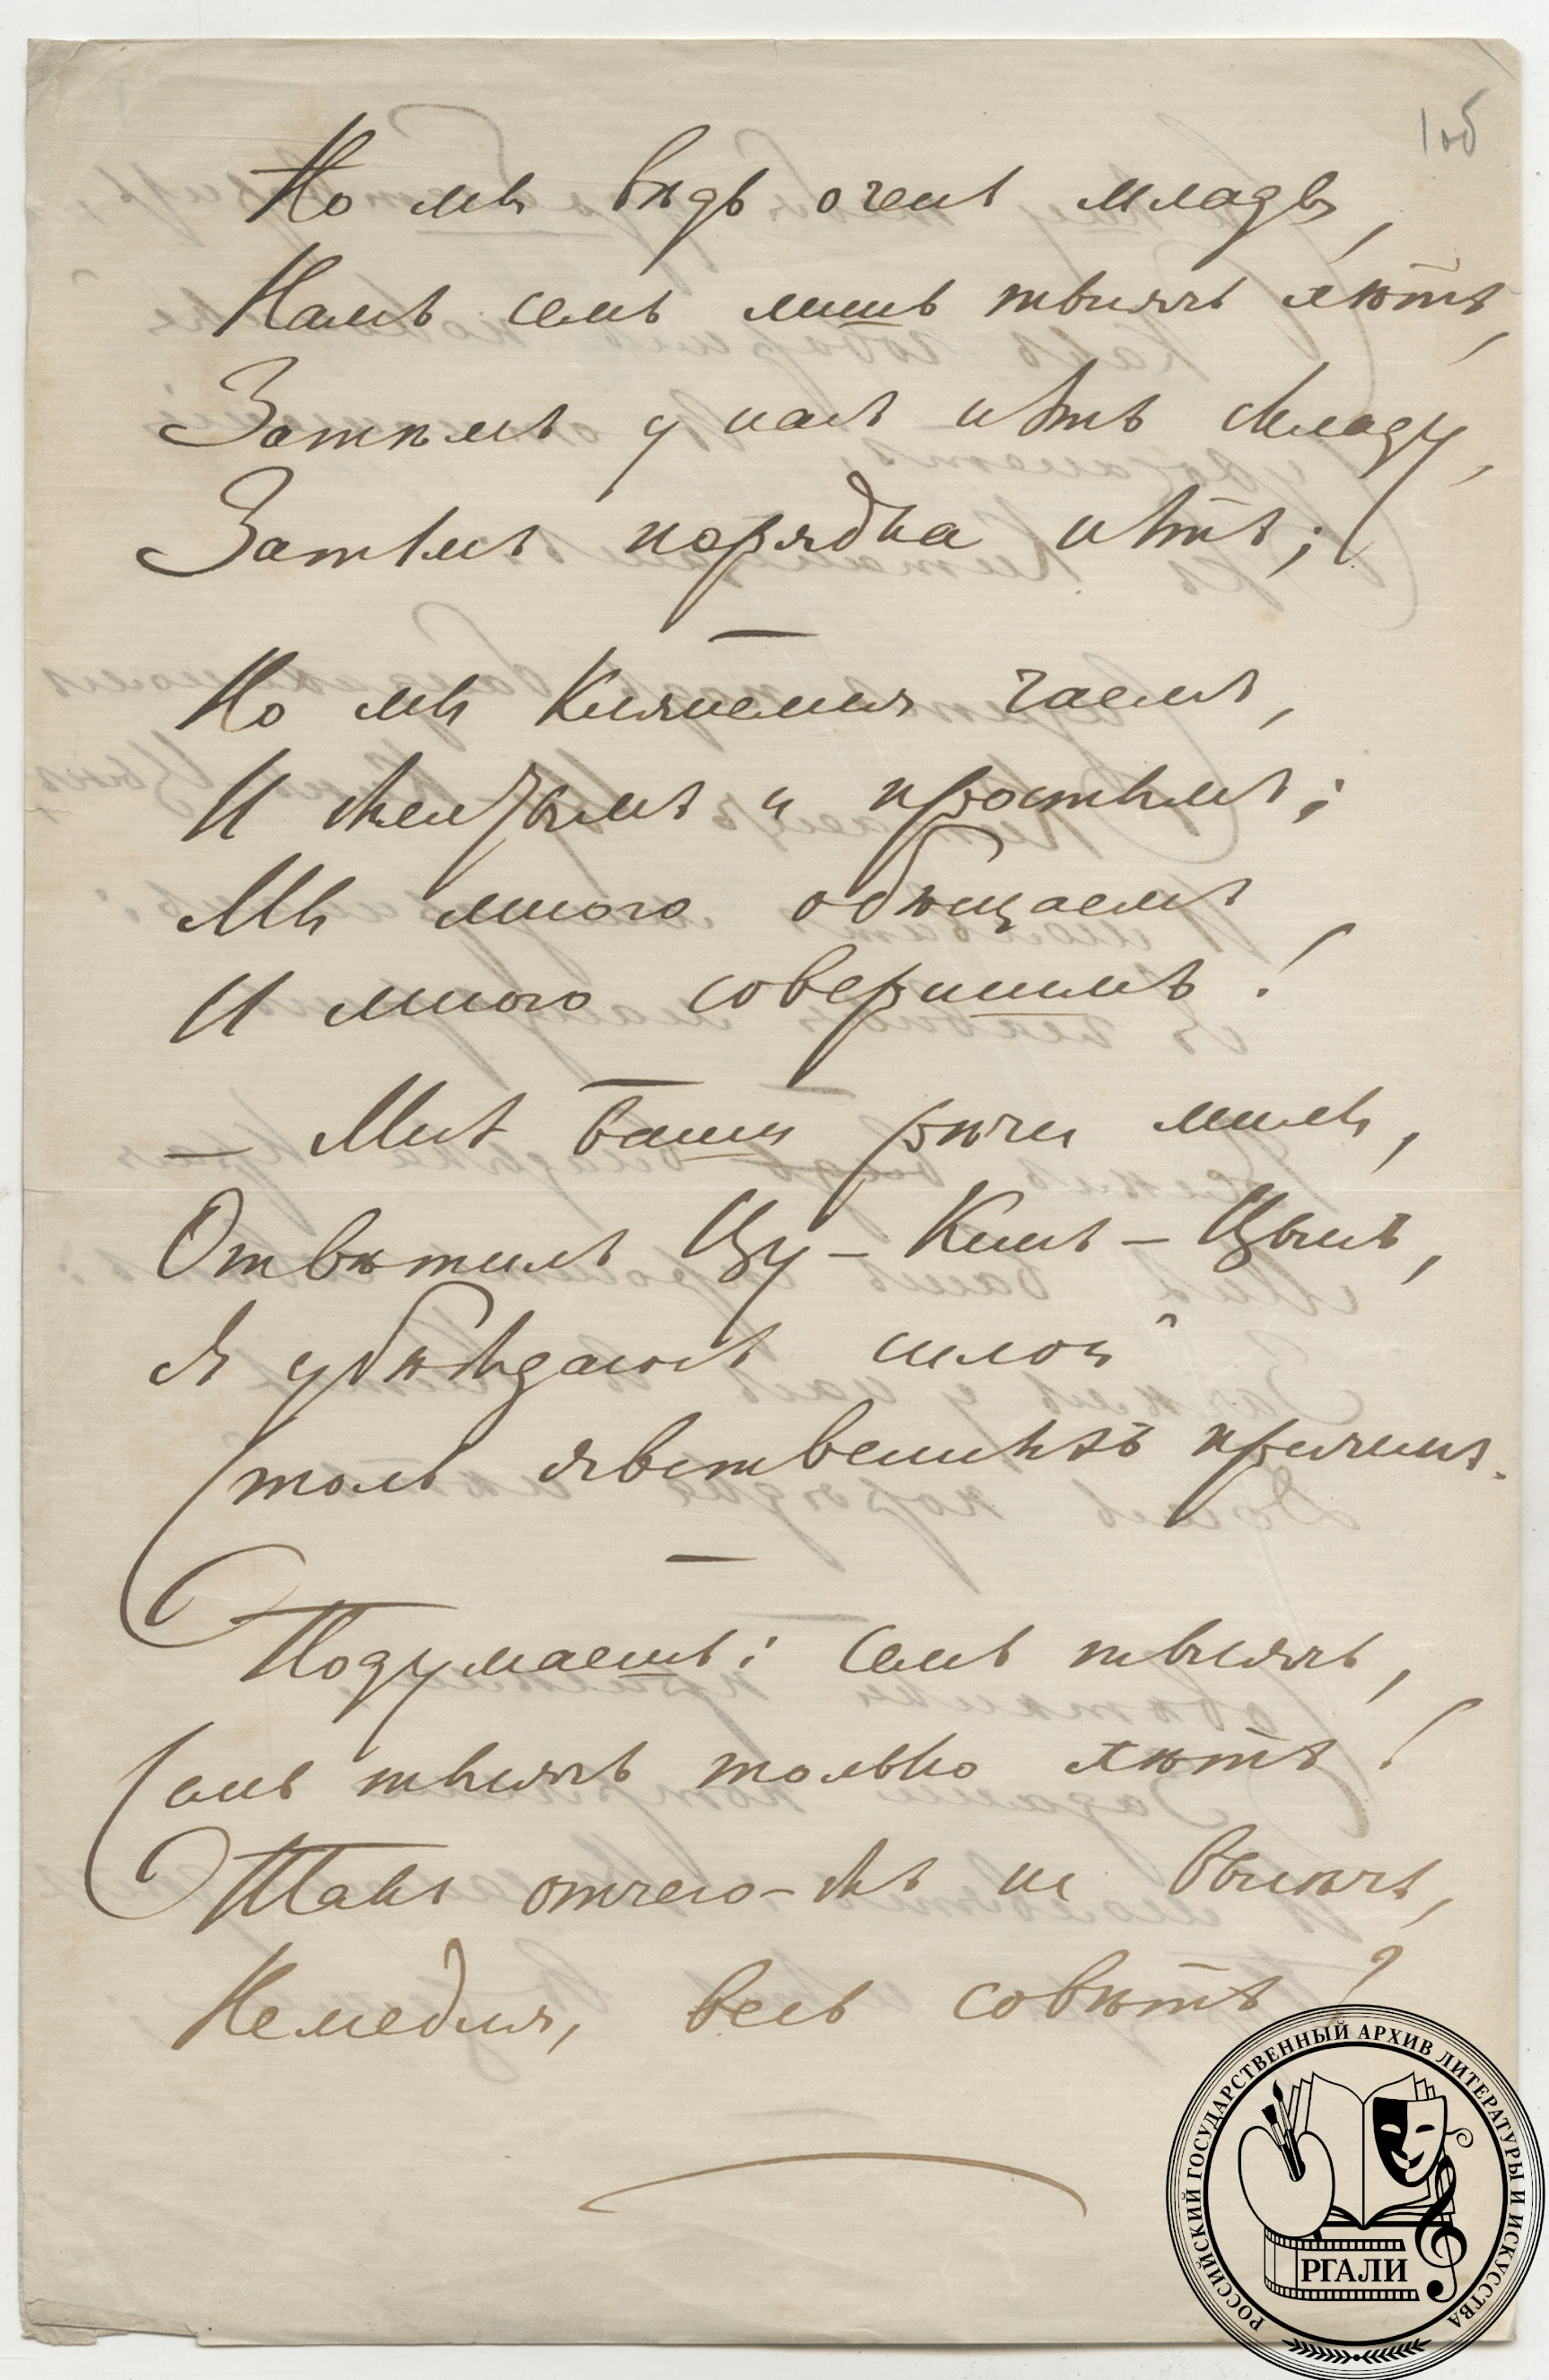 1об
Но мы вѣдь очень млады,
Намъ семь лишь тысячъ лѣтъ,
Затѣмъ у насъ нѣтъ складу,
Затѣмъ порядка нѣтъ;
Но мы клянемся чаемъ,
И желтымъ и простымъ;
Мы много обѣщаемъ
И много совершимъ!
— Мнѣ ваши рѣчи милы,
Отвѣтилъ Цу-Кинъ-Цынъ,
Я убѣждаюсь силой
Столь явственныхъ причинъ.
Подумаешь: семь тысячъ,
Семь тысячъ только лѣтъ!
Такъ отчего-жъ не высѣчь,
Немедля, весь совѣтъ?
РОССИЙСКИЙ ГОСУДАРСТВЕННЫЙ АРХИВ ЛИТЕРАТУРЫ И ИСКУССТВА
РГАЛИ